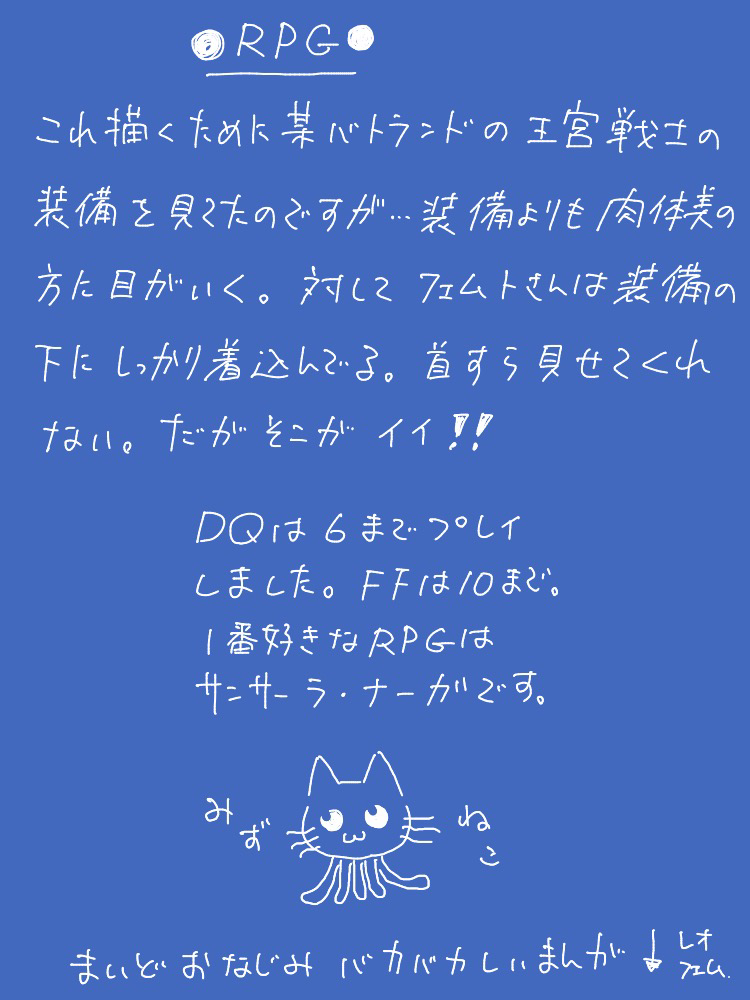 ●RPG●
これ描くために某バトランドの王宮戦士の
装備を見てたのですが…装備よりも肉体美の
方に目がいく。対してフェムトさんは装備の
下にしっかり着込んでる。首すら見せてくれ
ない。だがそこがイイ!!
DQは6までプレイ
しました。FFは10まで。
1番好きなRPGは
サンサーラ・ナーガです。
みず
ねこ
まいどおなじみバカバカしいまんが↓レオ
フェム.